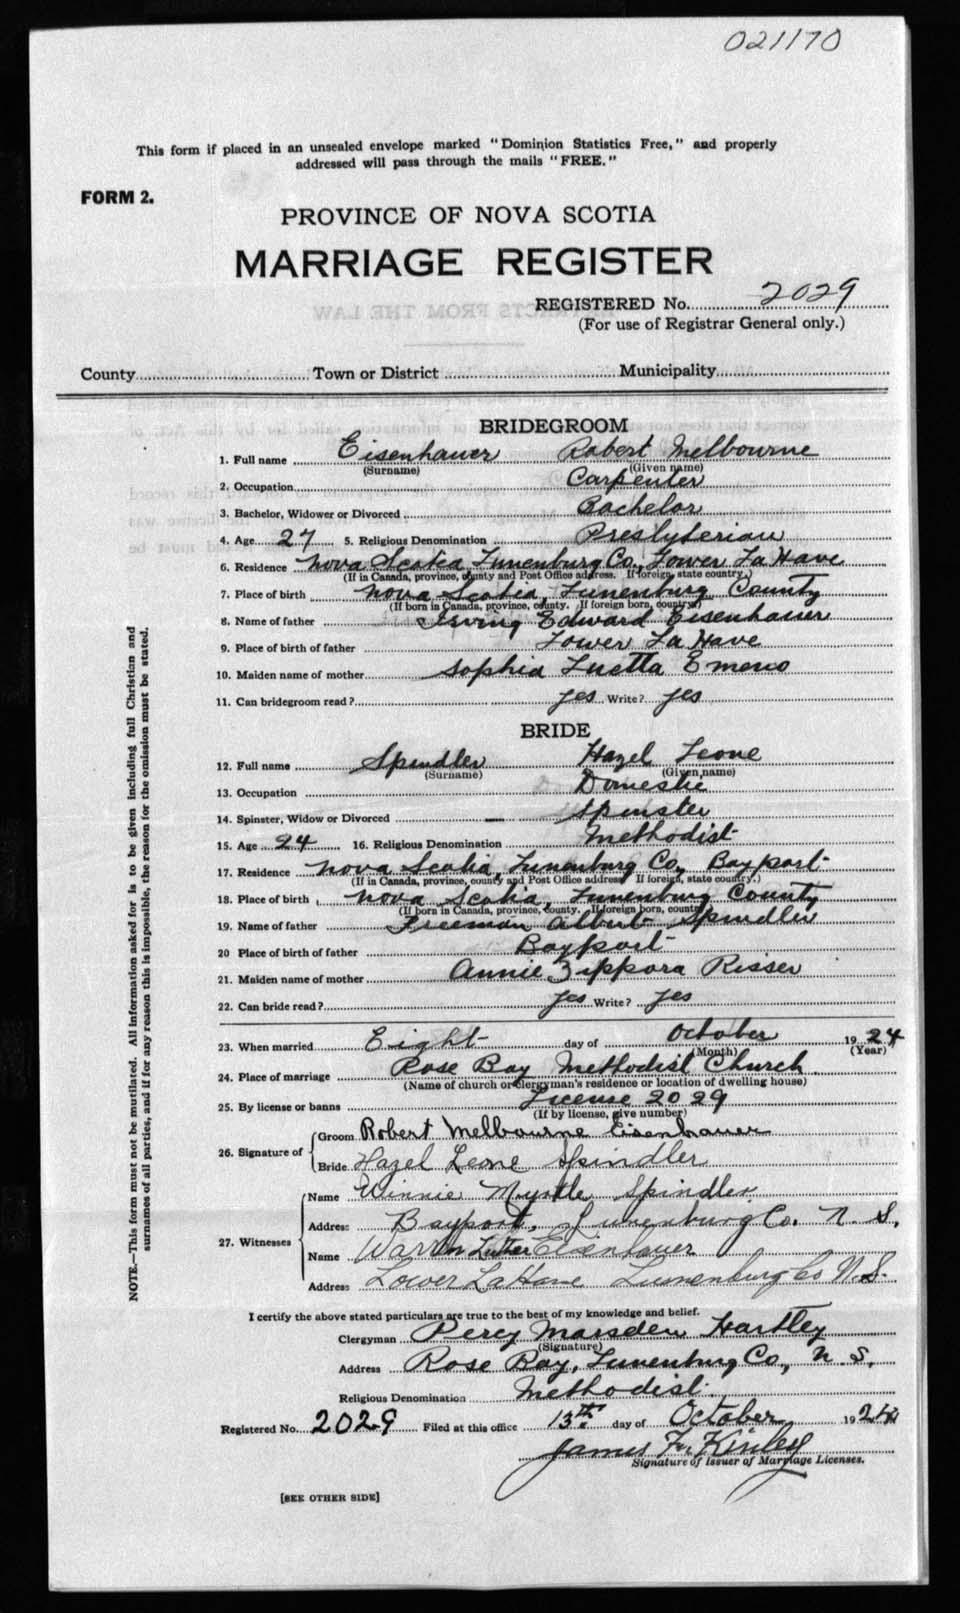 021170
This form if placed in an unsealed envelope marked "Dominion Statistics Free," and properly
addressed will pass through the mails "FREE."
FORM 2.
PROVINCE OF NOVA SCOTIA
MARRIAGE REGISTER
REGISTERED No. 2029
(For use of Registrar General only.)
County Town or District Municipality
BRIDEGROOM
1. Full name Eisenhauer Robert Melbourne
(Surname) (Given name)
2. Occupation Carpenter
3. Bachelor, Widower or Divorced Bachelor
4. Age 27 5. Religious Denomination Presbyterian
6. Residence Nova Scotia, Lunenburg Co., Lower La Have
(If in Canada, province, county and Post Office address. If foreign, state country.)
7. Place of birth Nova Scotia, Lunenburg County
(If born in Canada, province, county. If foreign born, country.)
8. Name of father Irving Edward Eisenhauer
9. Place of birth of father Lower La Have
10. Maiden name of mother Sophia Luetta Emeno
11. Can bridegroom read? yes Write? yes
BRIDE
12. Full name Spindler Hazel Leone
(Surname) (Given name)
13. Occupation Domestic
14. Spinster, Widow or Divorced Spinster
15. Age 24 16. Religious Denomination Methodist
17. Residence Nova Scotia, Lunenburg Co, Bayport
(If in Canada, province, county and Post Office address. If foreign, state country.)
18. Place of birth Nova Scotia, Lunenburg County
(If born in Canada, province, county. If foreign born, country)
19. Name of father Freeman Albert Spindler
20 Place of birth of father Bayport
21. Maiden name of mother Annie Zippora Risser
22. Can bride read? yes Write? yes
23. When married Eight day of October 1924
(Month) (Year)
24. Place of marriage Rose Bay Methodist Church
(Name of church or clergyman's residence or location of dwelling house)
25. By license or banns License 2029
(If by license, give number)
26. Signature of Groom Robert Melbourne Eisenhauer
Bride Hazel Leone Spindler
27. Witnesses Name Winnie Myrtle Spindler
Address Bayport, Lunenburg Co. N. S.
Name Warren Luther Eisenhauer
Address Lower LaHave Lunenburg Co N.S.
I certify the above stated particulars are true to the best of my knowledge and belief.
Clergyman Percy Marsden Hartley
(Signature)
Address Rose Bay, Lunenburg Co, N. S.
Religious Denomination Methodist.
Registered No. 2029 Filed at this office 13th day of October 1924
James F. Kinley
Signature of Issuer of Marriage Licenses.
[SEE OTHER SIDE]
NOTE.—This form must not be mutilated. All information asked for is to be given including full Christian and
surnames of all parties, and if for any reason this is impossible, the reason for the omission must be stated.